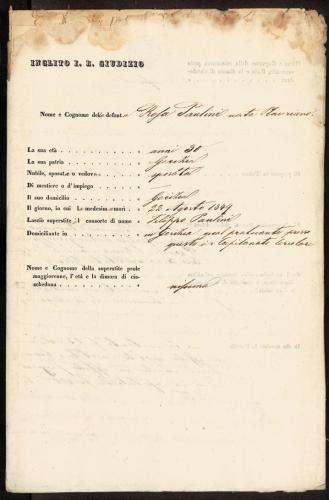 INCLITO I. R. GIUDIZIO
Nome e Cognome della defunta Rosa Paulini nata
La sua età anni 30
La sua patria Gorizia
Nubile, sposata o vedova sposata
Di mestiere o d'impiego
Il suo domicilio Gorizia
Il giorno, in cui la medesima morì 22 Agosto 1849
Lasciò superstite il consorte di nome Filippo Paulini
Domiciliante in in Gorizia, qual praticante presso
questo i. r. Capitanato Circolare
Nome e Cognome della superstite prole
maggiorenne, l'età e la dimora di cia-
schedana nessuna